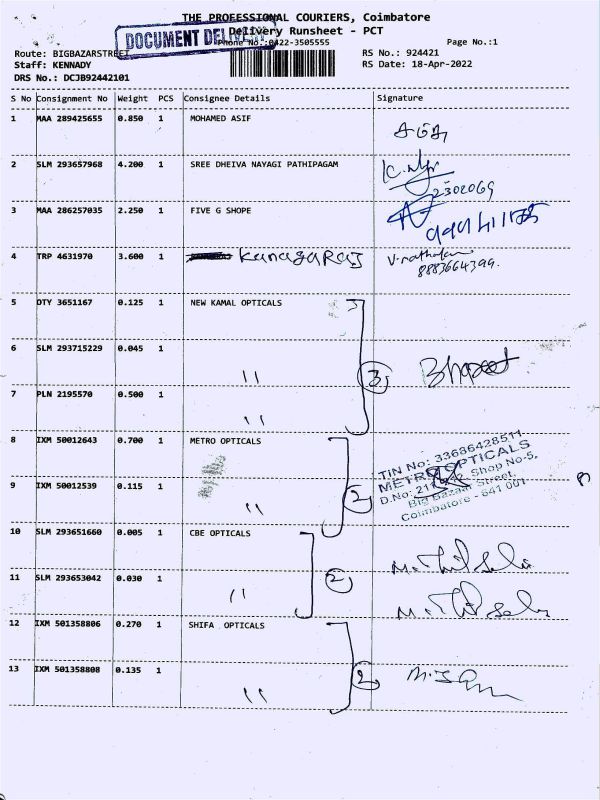 THE PROFESSIONAL COURIERS, Coimbatore
Delivery Runsheet - PCT
DOCUMENT DELIVERY
Phone No.:0422-3505555
Page No.:1
Route: BIGBAZARSTREET
RS No.: 924421
Staff: KENNADY
RS Date: 18-Apr-2022
DRS No.: DCJB92442101
S No Consignment No Weight PCS Consignee Details Signature
1 MAA 289425655 0.850 1 MOHAMED ASIF
2 SLM 293657968 4.200 1 SREE DHEIVA NAYAGI PATHIPAGAM
2302069
3 MAA 286257035 2.250 1 FIVE G SHOPE
4 TRP 4631970 3.600 1 KanagaRaj
8883664399.
5 OTY 3651167 0.125 1 NEW KAMAL OPTICALS
6 SLM 293715229 0.045 1 〃
3
7 PLN 2195570 0.500 1 〃
8 IXM 50012643 0.700 1 METRO OPTICALS
TIN No: 33686428511
METRO OPTICALS
Shop No-5,
9 IXM 50012539 0.115 1 〃 2
Big Bazaar Street,
Coimbatore - 641 001
10 SLM 293651660 0.005 1 CBE OPTICALS
2
11 SLM 293653042 0.030 1 〃
12 IXM 501358806 0.270 1 SHIFA OPTICALS
2
13 IXM 501358808 0.135 1 〃